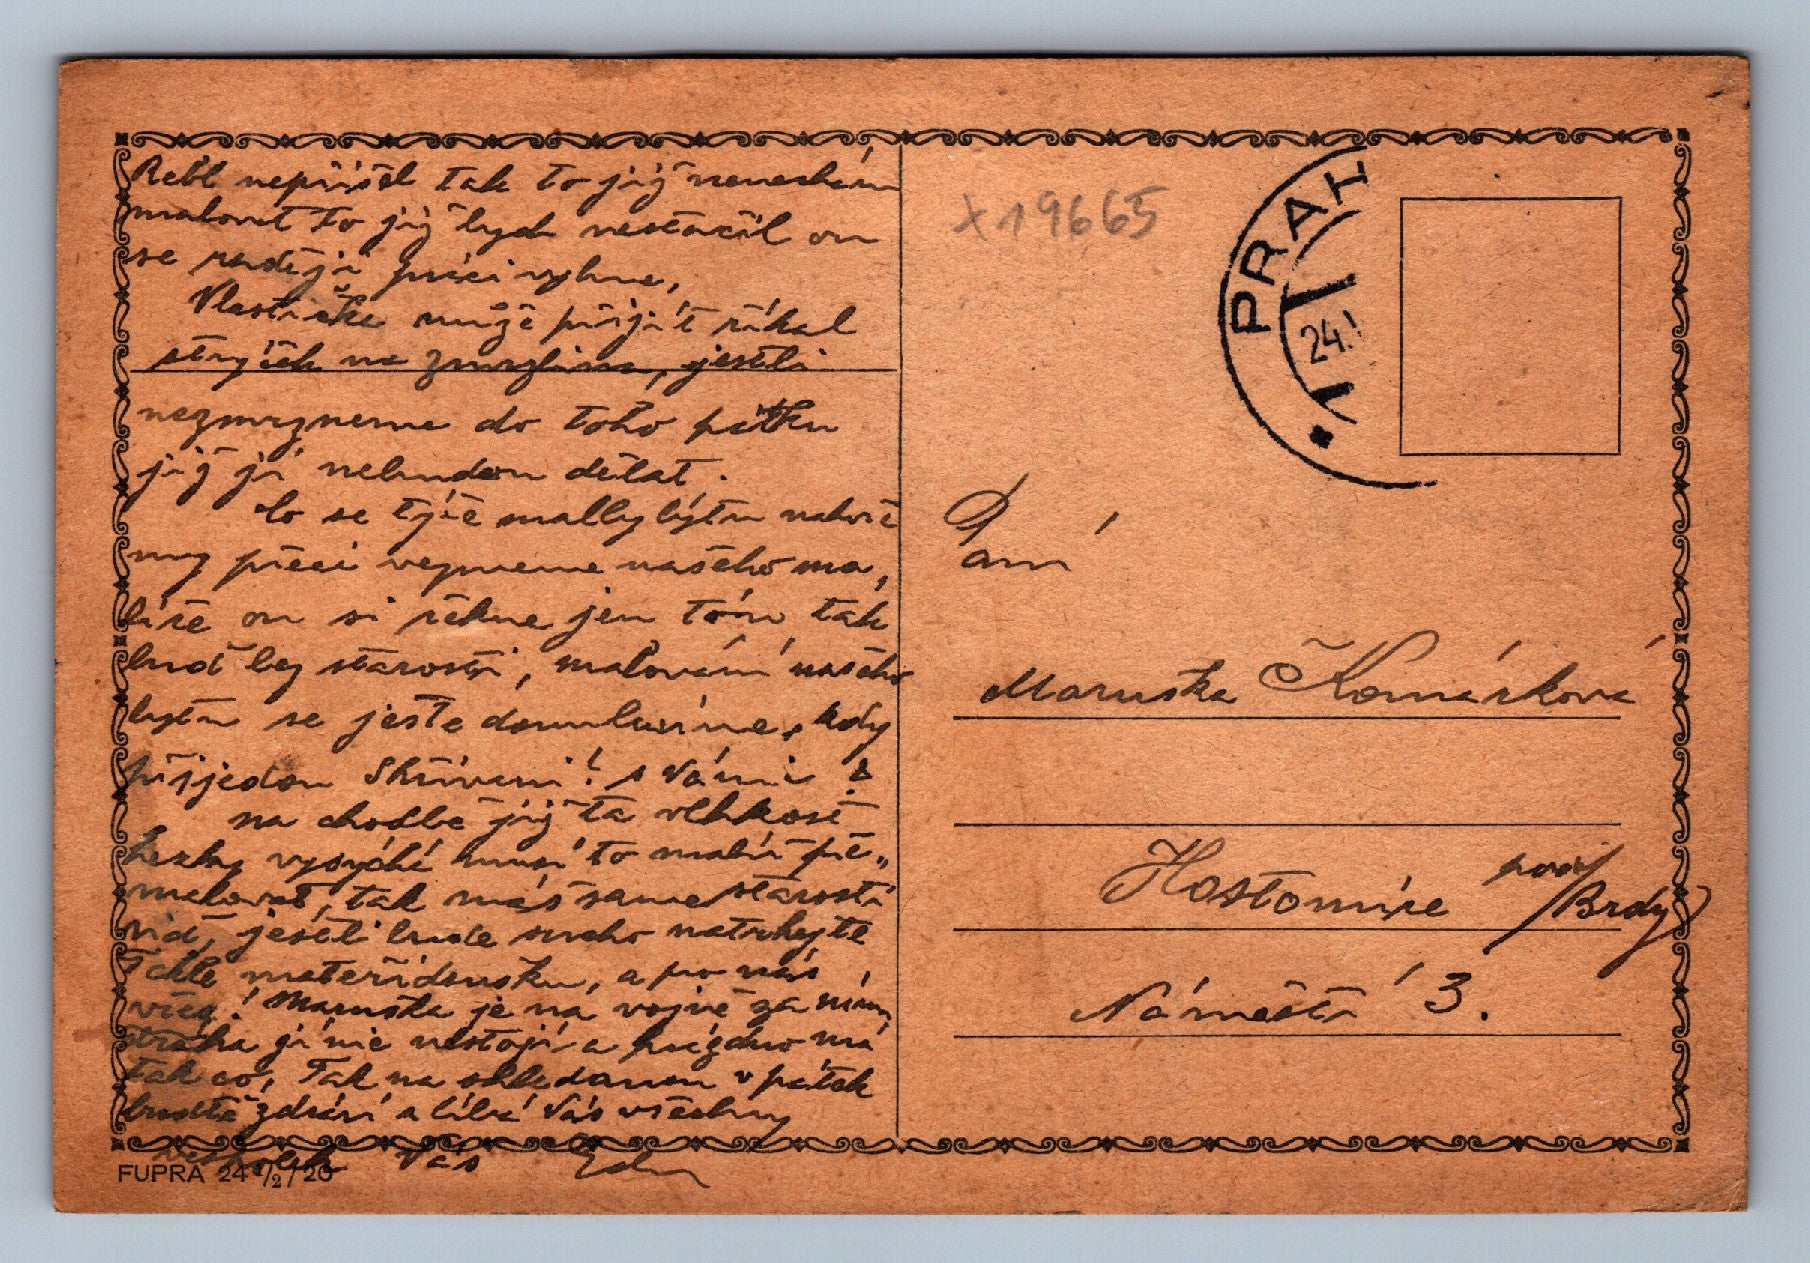 nepřišel tak to již nenechám
malovat to již bych nestačil on
se raději práci vyhne,
může přijít říkal
strýček na zmrzlinu, jestli
nezmrzneme do toho pátku
již já nebudou dělat.
Co se týče malby bytu
my přeci vezmeme našeho ma„
líře on si řekne jen tón tak
buď bez starosti, malování našeho
bytu se ještě domluvíme, kdy
přijedou Skřivani! s Vámi!
na chodbě již ta vlhkost
hezky vysychá musí to malíř pře„
malovat, tak máš samé starosti
viď, jestli bude sucho natrhejte
mateřídoušku, a po nás
Maruška je na vojně za ním
straka já nic nestojí a prázdno má
tak co, Tak na shledanou v pátek
buďte zdrávi a líbá Vás všechny
Vás
FUPRA 24 1/2/20
x 19665
PRAH
24.
Paní
Maruška Komárková
Hostomice pod Brdy
Náměstí 3.